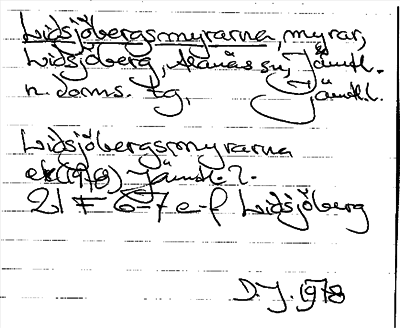 Lidsjöbergsmyrarna, myrar,
Lidsjöberg, Alanäs sn, Jämtl.
n. doms. tg, Jämtl. l.
Lidsjöbergsmyrarna
ek (1978) Jämtl. l.
21 F 6-7 e-f Lidsjöberg
D.J. 1978